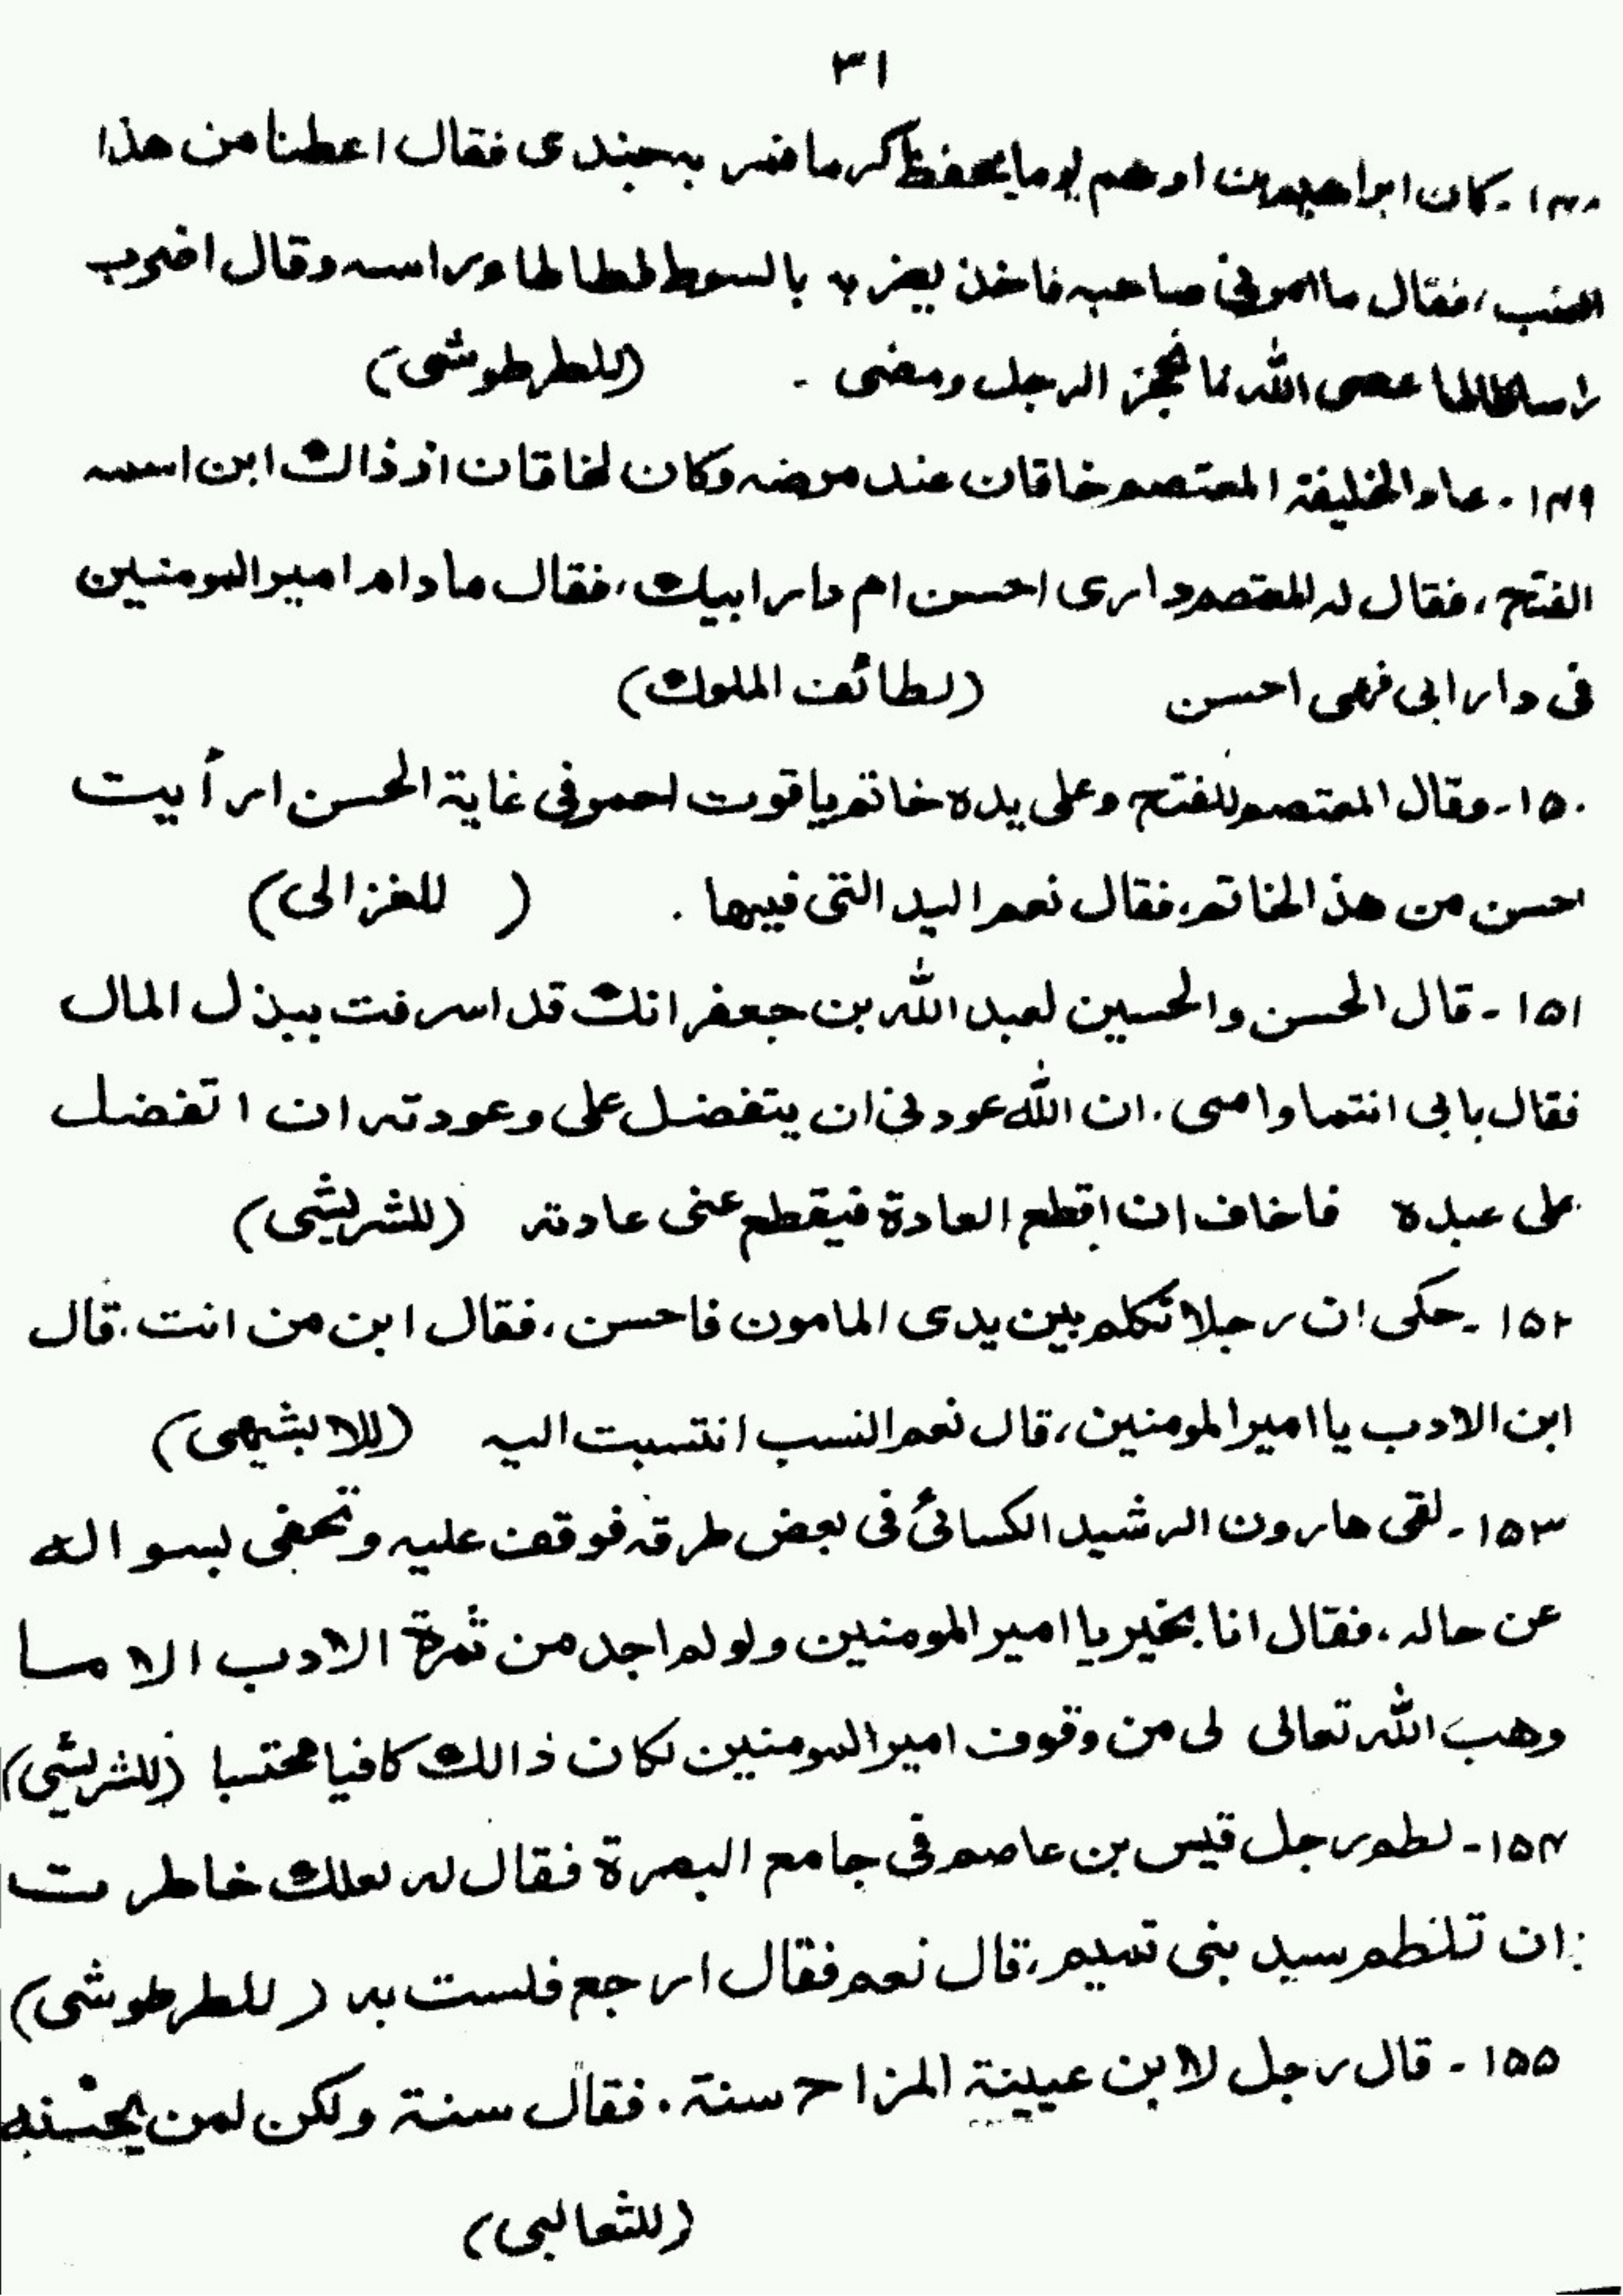 ۳۱
۱۴۸۔ کان ابراهیم بن ادهم یوما یحفظ کرما فمر به جندی فقال اعطنا من هذا
العنب، فقال ما امرنی صاحبه فاخذ یضربه بالسوط لطا لطا وراسه وقال اضرب
راسا طالما عصی الله فاعجز الرجل ومضی ۔ (للطرطوشی)
۱۴۹۔ عاد الخلیفة المعتصم خاقان عند مرضه وکان لخاقان اذ ذاك ابن اسمه
الفتح، فقال له المعتصم داری احسن ام دار ابیك، فقال ما دام امیر المومنین
فی دار ابی فهی احسن (لطائف الملوك)
۱۵۰۔ وقال المعتصم للفتح وعلی یده خاتم یاقوت احمر فی غایة الحسن ارأیت
احسن من هذ الخاتم، فقال نعم الید التی فیها ۔ ( للغزالی)
۱۵۱۔ قال الحسن والحسین لعبد الله بن جعفر انك قد اسرفت ببذل المال
فقال بابی انتما وامی، ان الله عودنی ان یتفضل علی وعودته ان اتفضل
علی عبده فاخاف ان اقطع العادة فیقطع عنی عادته (للشریشی)
۱۵۲۔ حکی ان رجلا تکلم بین یدی المامون فاحسن، فقال ابن من انت، قال
ابن الادب یا امیر المومنین، قال نعم النسب انتسبت الیه (للابشیهی)
۱۵۳۔ لقی هارون الرشید الکسائی فی بعض طرقه فوقف علیه وتحفی بسواله
عن حاله، فقال انا بخیر یا امیر المومنین ولو لم اجد من ثمرة الادب الا ما
وهب الله تعالی لی من وقوف امیر المومنین لکان ذالك کافیا محتسبا (للشریشی)
۱۵۴۔ لطم رجل قیس بن عاصم فی جامع البصرة فقال له لعلك خاطرت
ان تلطم سید بنی تمیم، قال نعم فقال ارجع فلست به (للطرطوشی)
۱۵۵۔ قال رجل لابن عیینة المزاح سنة، فقال سنة ولکن لمن یحسنه
(للثعالبی)